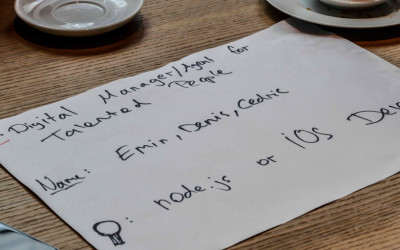 Digital Manager/Agent for
Talented People
Name: Emin, Denis, Cedric
: node.js or iOS Deve